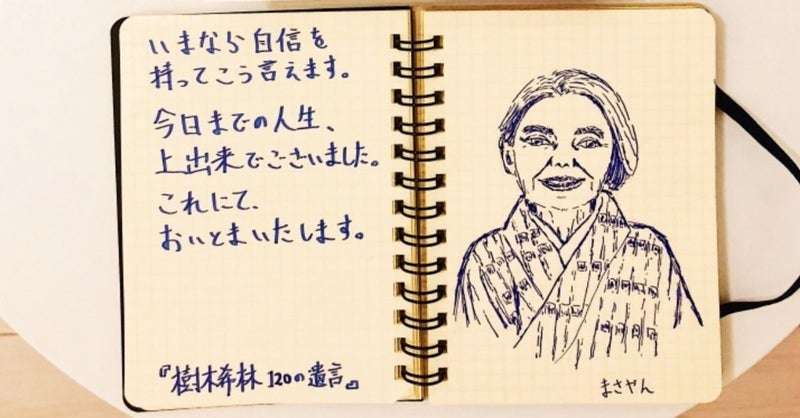 いまなら自信を
持ってこう言えます。
今日までの人生、
上出来でございました。
これにて、
おいとまいたします。
『樹木希林 120の遺言』
まさやん